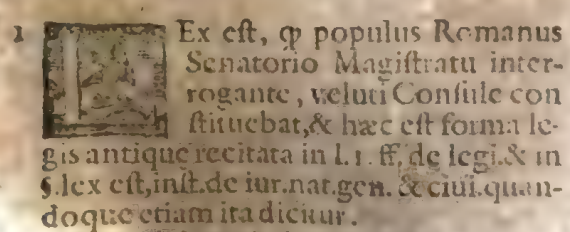 1 LEx eſt, ꝙ populus Romanus
Senatorio Magiſtratu inter-
rogante, veluti Conſule con
ſtituebat,& hæc eſt forma le-
gis antique recitata in l. 1. ff. de legi.& in
§.lex eſt,inſt.de iur.nat.gen. & ciui.quan-
doque etiam ita dicitur.